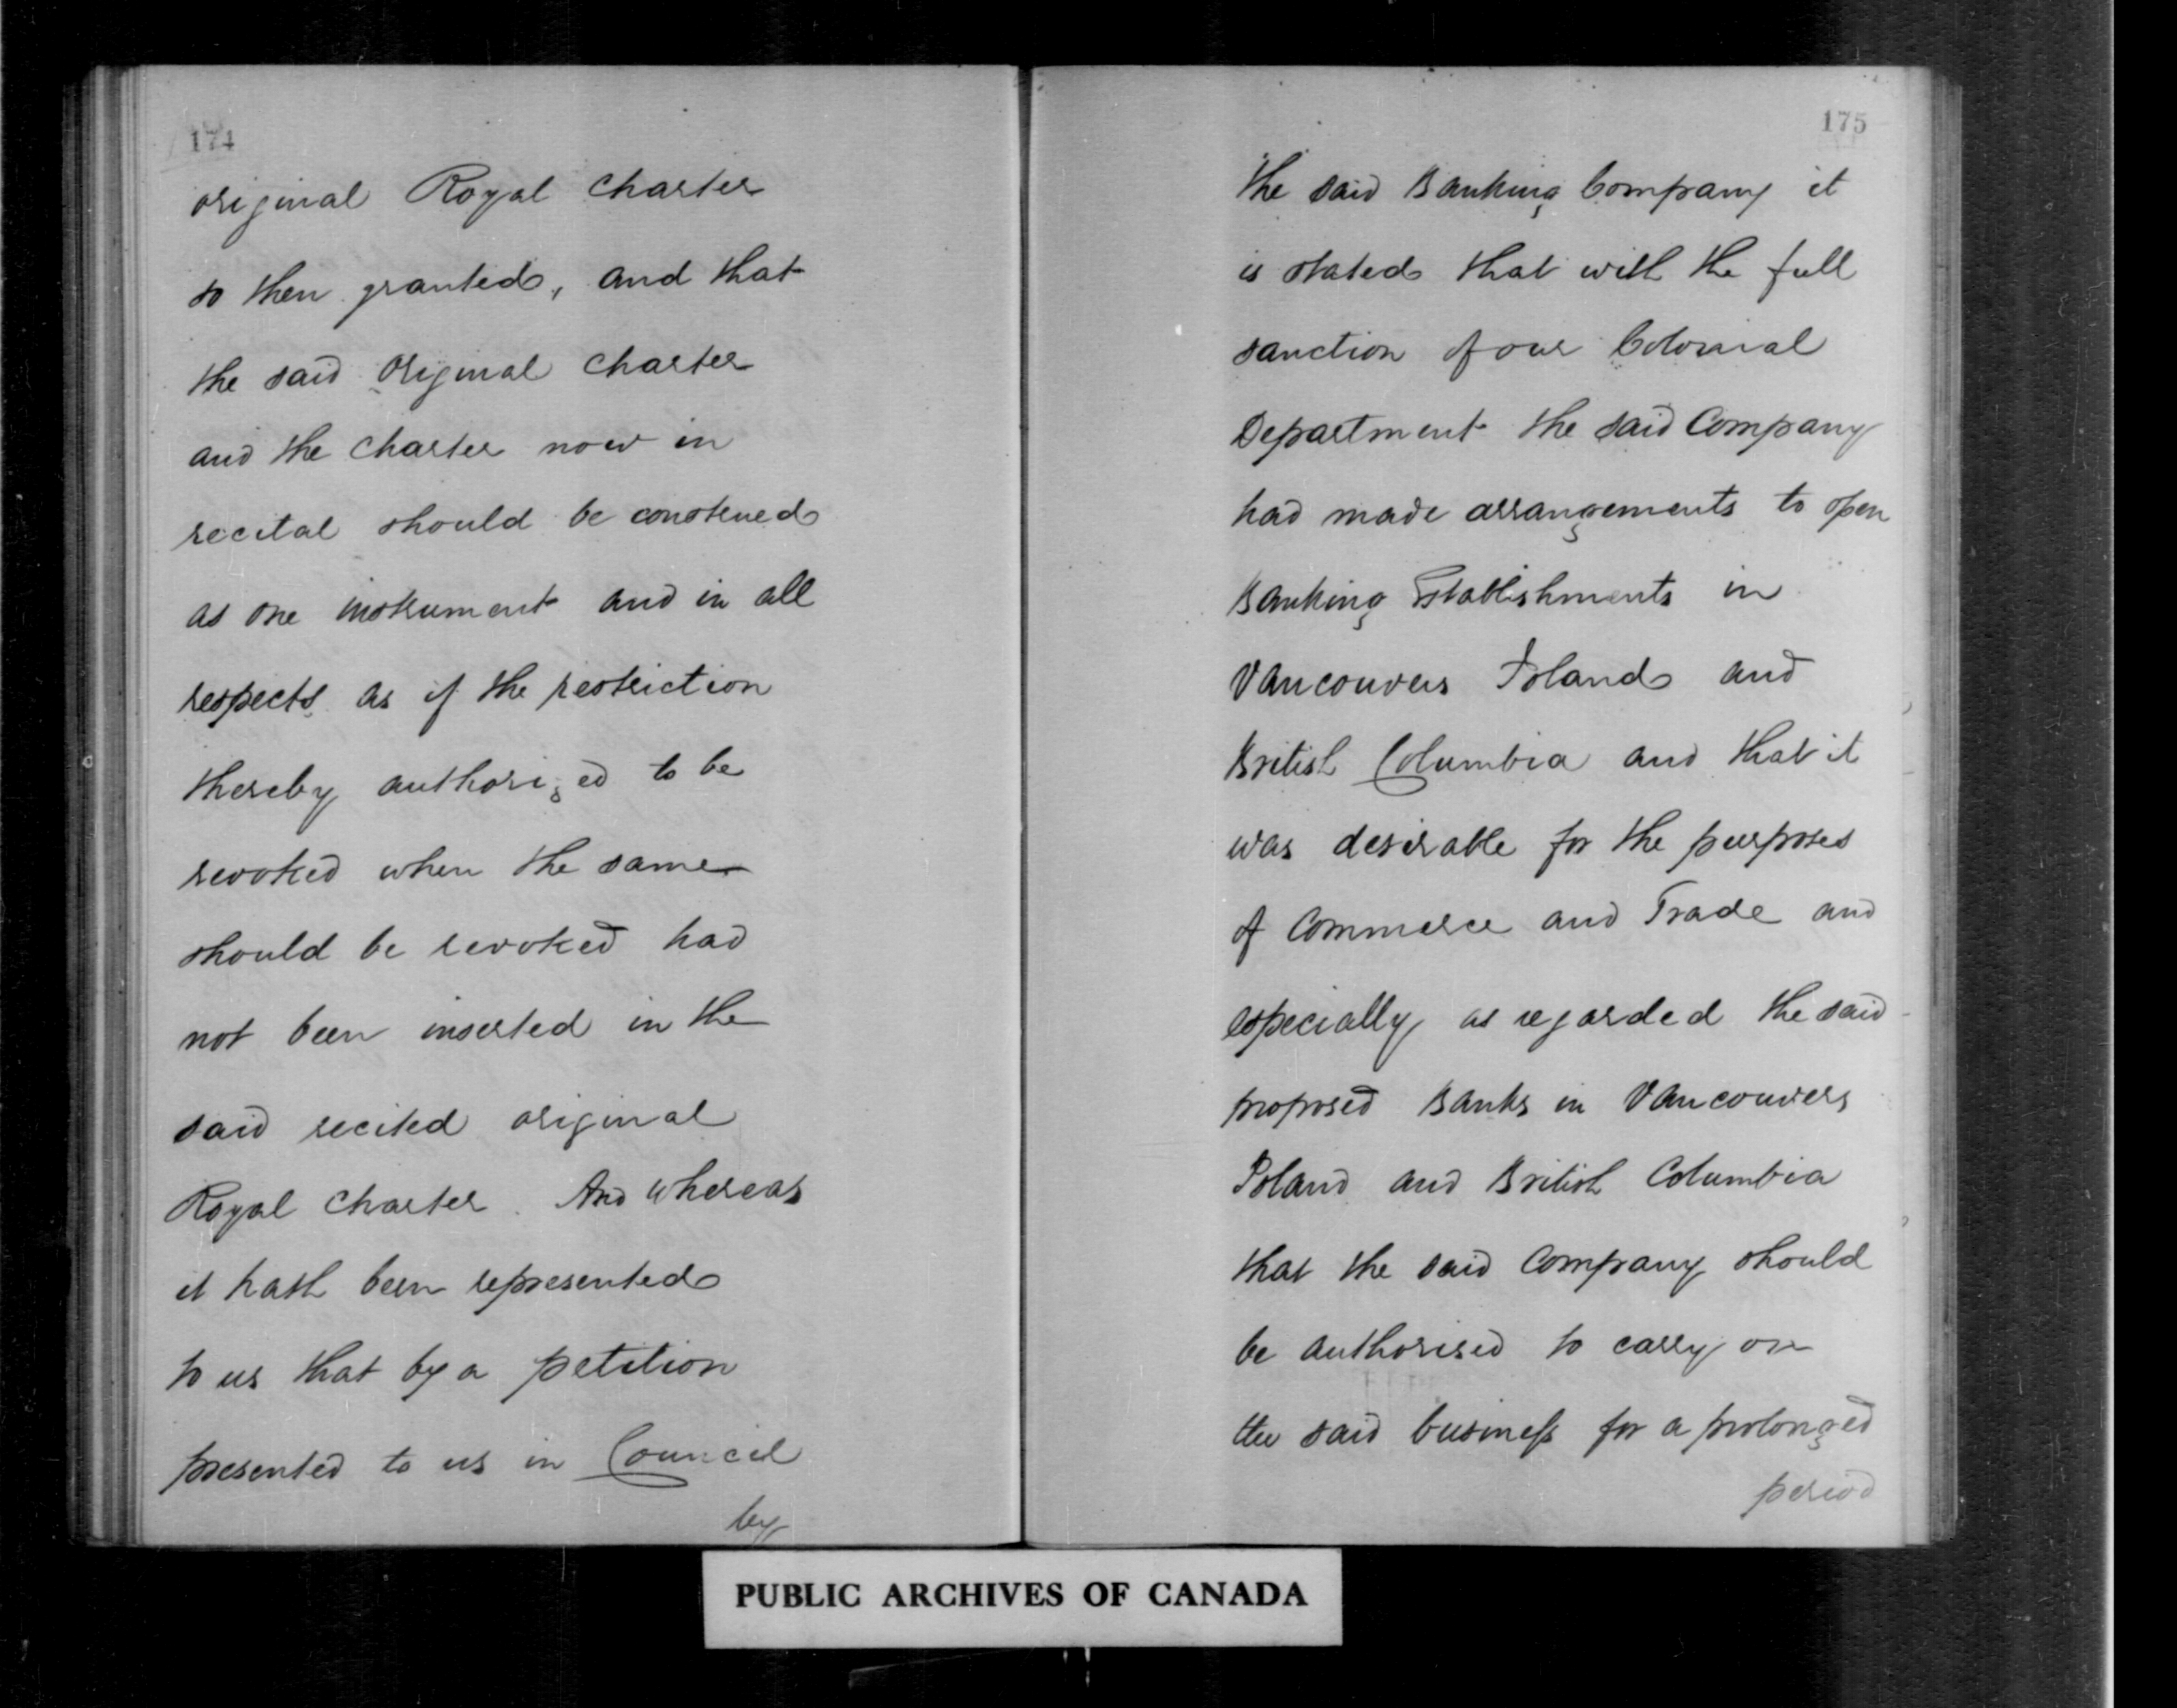 174
original Royal Charter
so then granted, and that
the said Original Charter
and the Charter now in
recital should be construed
as one instrument and in all
respects as if the restriction
thereby authorized to be
revoked when the same
should be revoked had
not been inserted in the
said recited original
Royal Charter. And whereas
it hath been represented
to us that by a petition
presented to us in Council
by
175
the said Banking Company it
is stated that with the full
sanction of our Colonial
Department the said Company
had made arrangements to open
Banking Establishments in
Vancouvers Island and
British Columbia and that it
was desirable for the purposes
of Commerce and Trade and
especially as regarded the said
proposed Banks in Vancouvers
Island and British Columbia
that the said Company should
be authorised to carry on
the said business for a prolonged
period
PUBLIC ARCHIVES OF CANADA